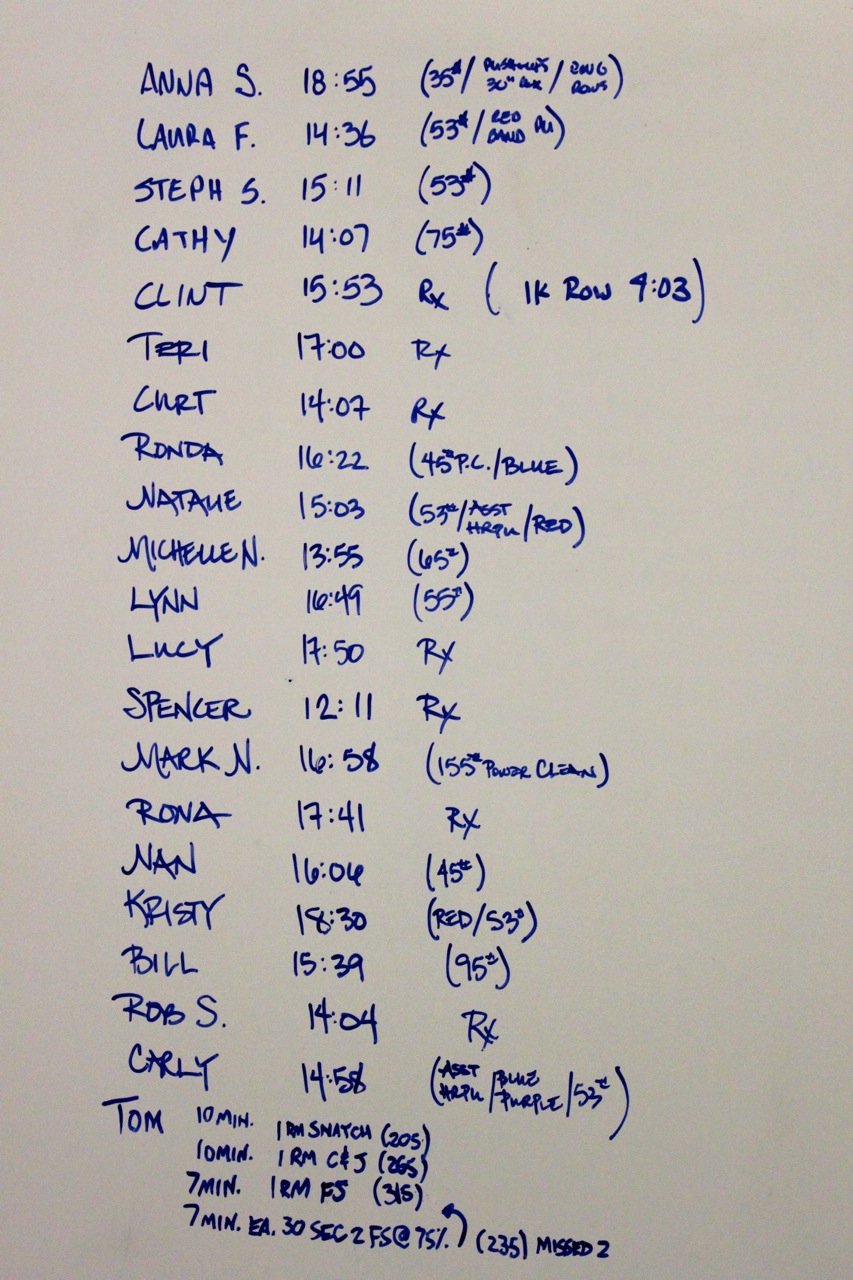 ANNA S. 18:55 (35#/ PUSHUPS 30" BOX / RING ROWS)
LAURA F. 14:36 (53#/ RED BAND PU)
STEPH S. 15:11 (53#)
CATHY 14:07 (75#)
CLINT 15:53 Rx ( 1K ROW 4:03)
TERI 17:00 Rx
CURT 14:07 Rx
RONDA 16:22 (45# P.C./BLUE)
NATALIE 15:03 (53#/ASST HRPU/RED)
MICHELLE N. 13:55 (65#)
LYNN 16:49 (55#)
LUCY 17:50 Rx
SPENCER 12:11 Rx
MARK N. 16:58 (155# POWER CLEAN)
RONA 17:41 Rx
NAN 16:06 (45#)
KRISTY 18:30 (RED/53#)
BILL 15:39 (95#)
ROB S. 14:04 Rx
CARLY 14:58 (ASST HRPU/BLUE PURPLE/53#)
TOM 10 MIN. 1 RM SNATCH (205)
10 MIN. 1 RM C&J (265)
7 MIN. 1 RM FS (315)
7 MIN. EA. 30 SEC 2 FS @ 75% (235) MISSED 2